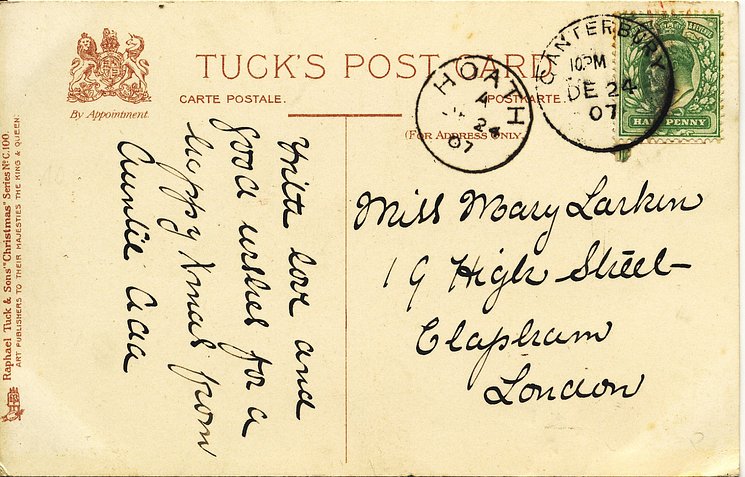 TUCK'S POST CARD
CARTE POSTALE.
POSTKARTE.
(FOR ADDRESS ONLY.)
By Appointment.
CANTERBURY
10PM
DE 24
07
HOATH
24
07
HALFPENNY
With love and
good wishes for a
happy Xmas from
Auntie Ada
Miss Mary Larkin
19 High Street
Clapham
London
Raphael Tuck & Sons' "Christmas" Series No C. 100.
ART PUBLISHERS TO THEIR MAJESTIES THE KING & QUEEN.